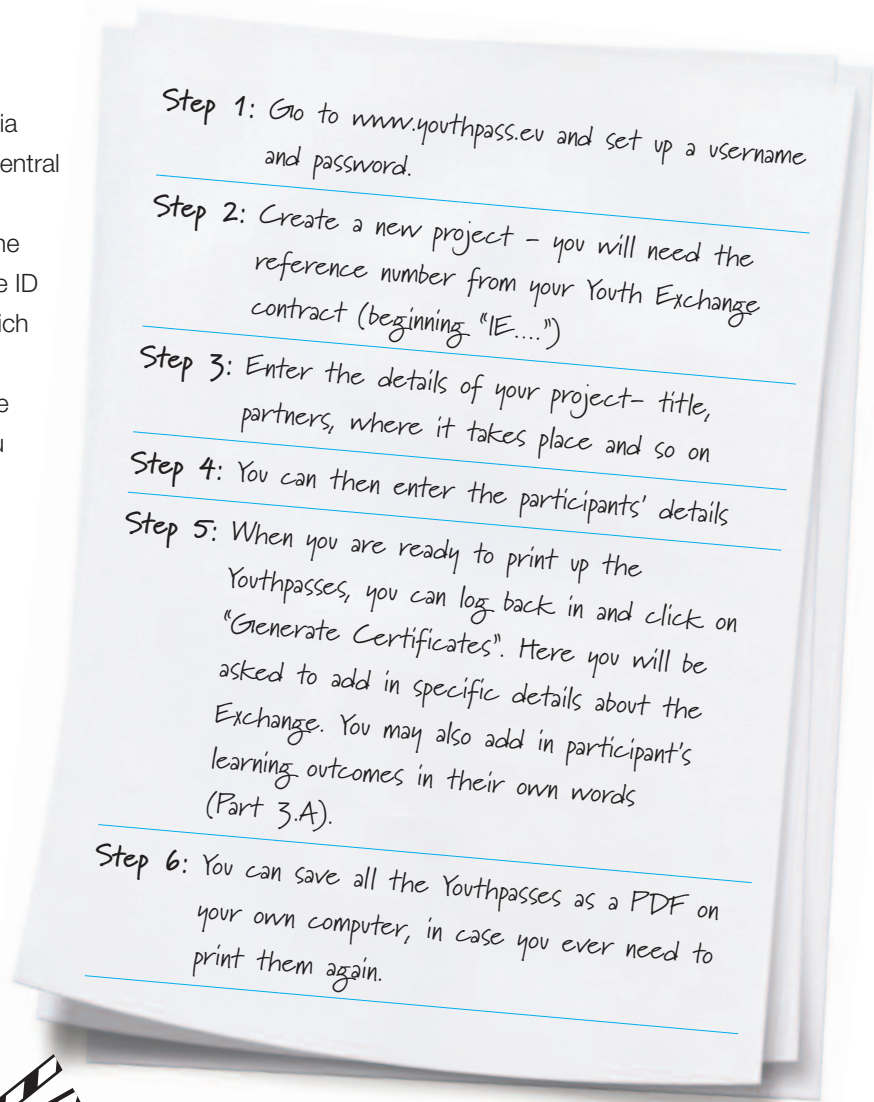 ia
entral
ne
e ID
ich
e
u
Step 1: Go to www.youthpass.eu and set up a username
and password.
Step 2: Create a new project – you will need the
reference number from your Youth Exchange
contract (beginning "IE....")
Step 3: Enter the details of your project– title,
partners, where it takes place and so on
Step 4: You can then enter the participants' details
Step 5: When you are ready to print up the
Youthpasses, you can log back in and click on
"Generate Certificates". Here you will be
asked to add in specific details about the
Exchange. You may also add in participant's
learning outcomes in their own words
(Part 3.A).
Step 6: You can save all the Youthpasses as a PDF on
your own computer, in case you ever need to
print them again.